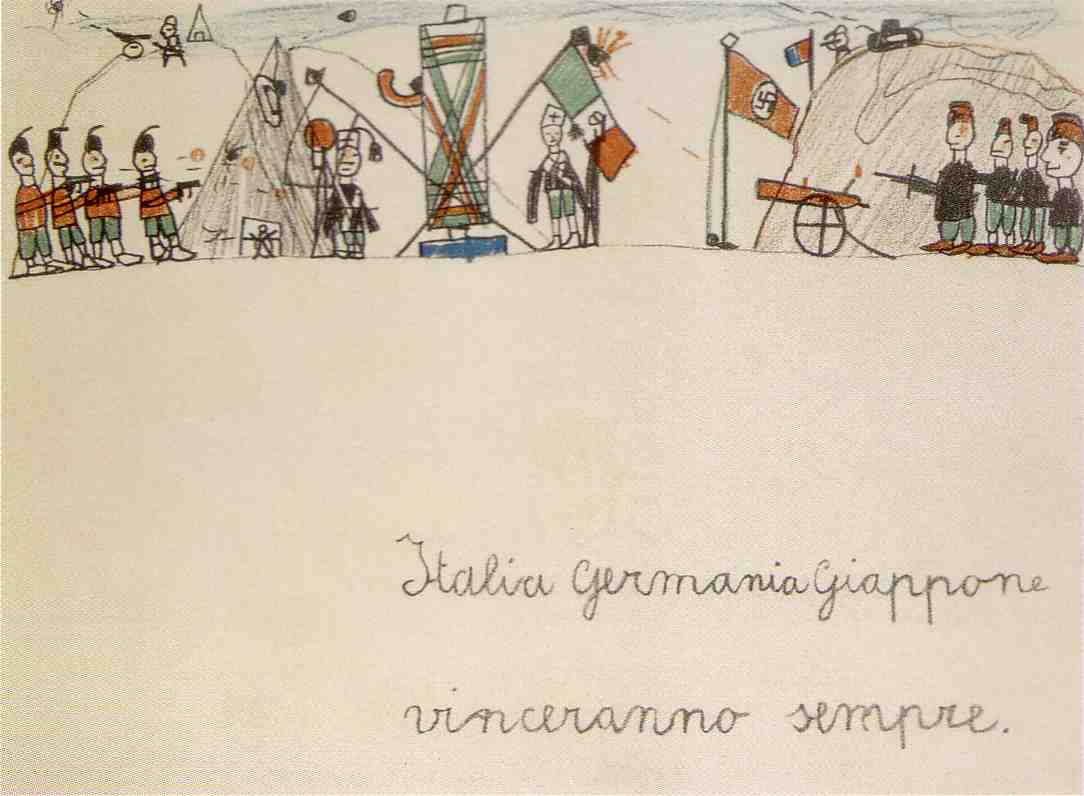 Italia Germania Giappone
vinceranno sempre.